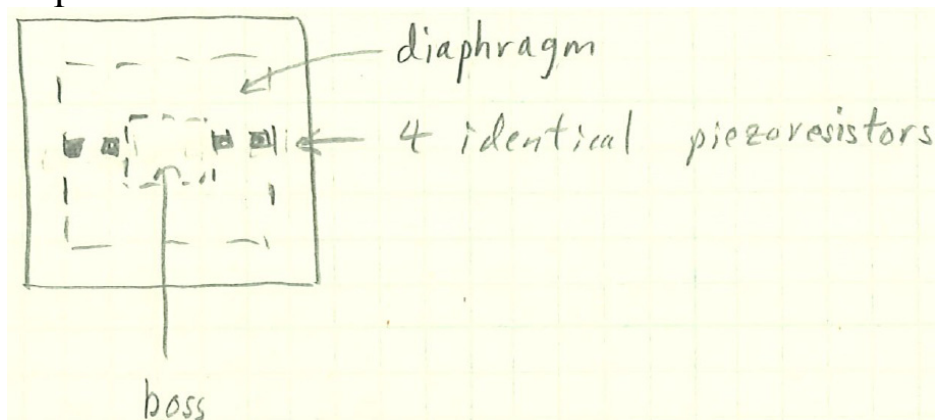 diaphragm
4 identical piezoresistors
boss